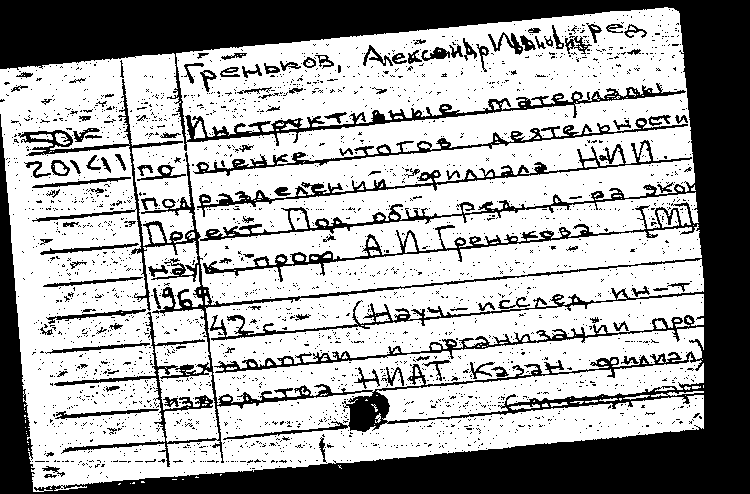 Греньков, Александр Иванович, ред.
50к
Инструктивные материалы
201411
по оценке итогов деятельности
подразделений филиала НИИ.
Проект. Под общ. ред. д-ра экон
наук, проф. А.И. Гренькова. [М]
1969.
42 с. (Науч.-исслед. ин-т
технологии и организации про-
изводства. НИАТ. Казан. филиал)